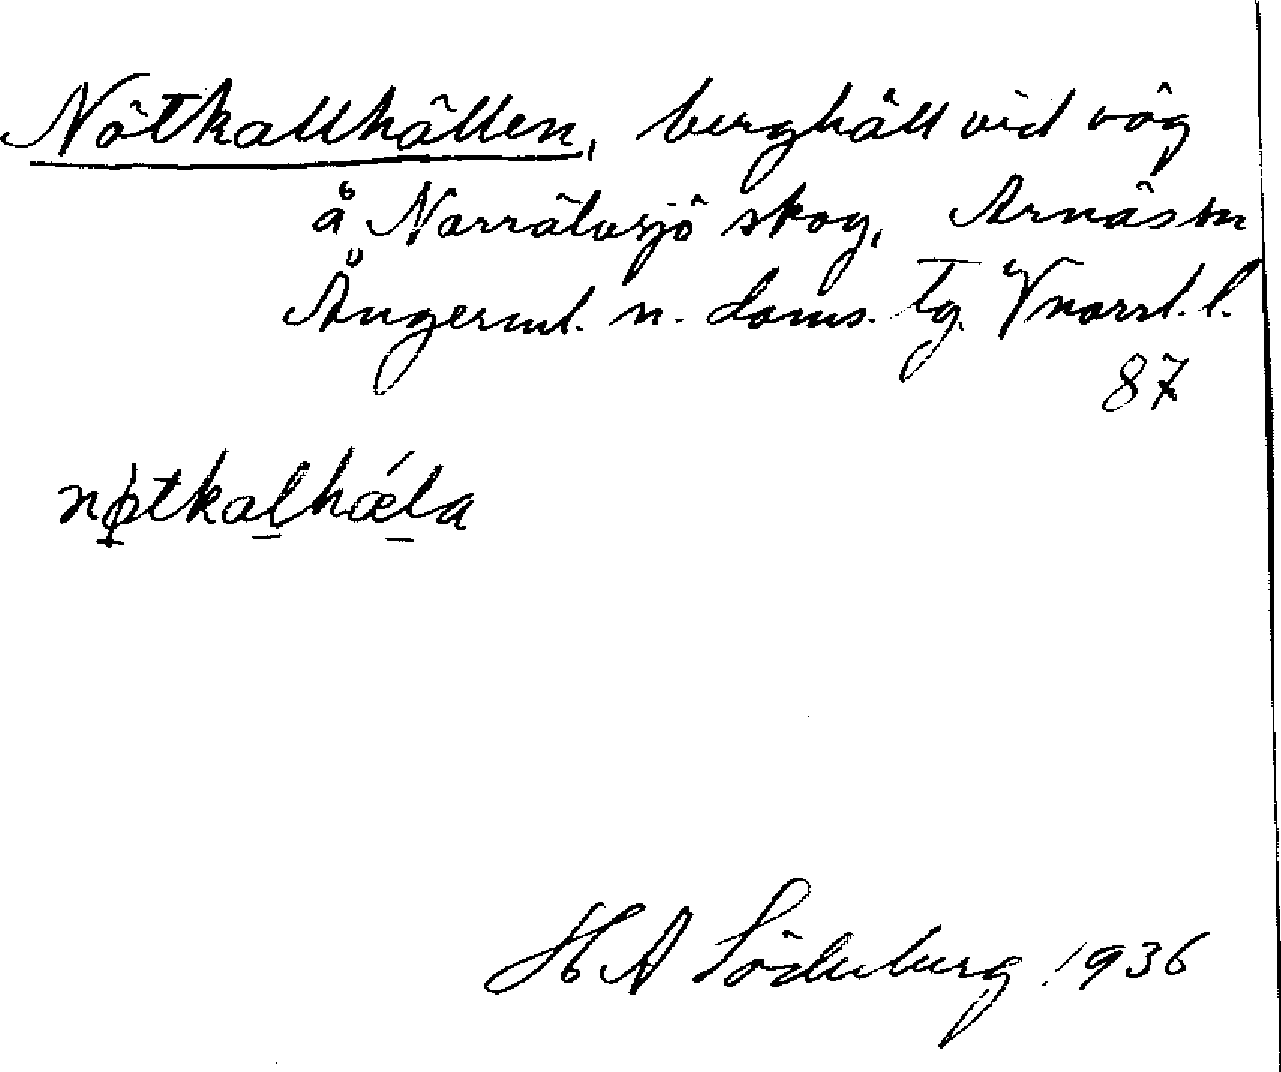 Nötkallhällen, berghäll vid väg
å Norrälvsjö skog, Arnäs sn
Ångerml. n. doms. tg. Vnorrl. l.
87
nøtkalhæla
H A Söderberg 1936